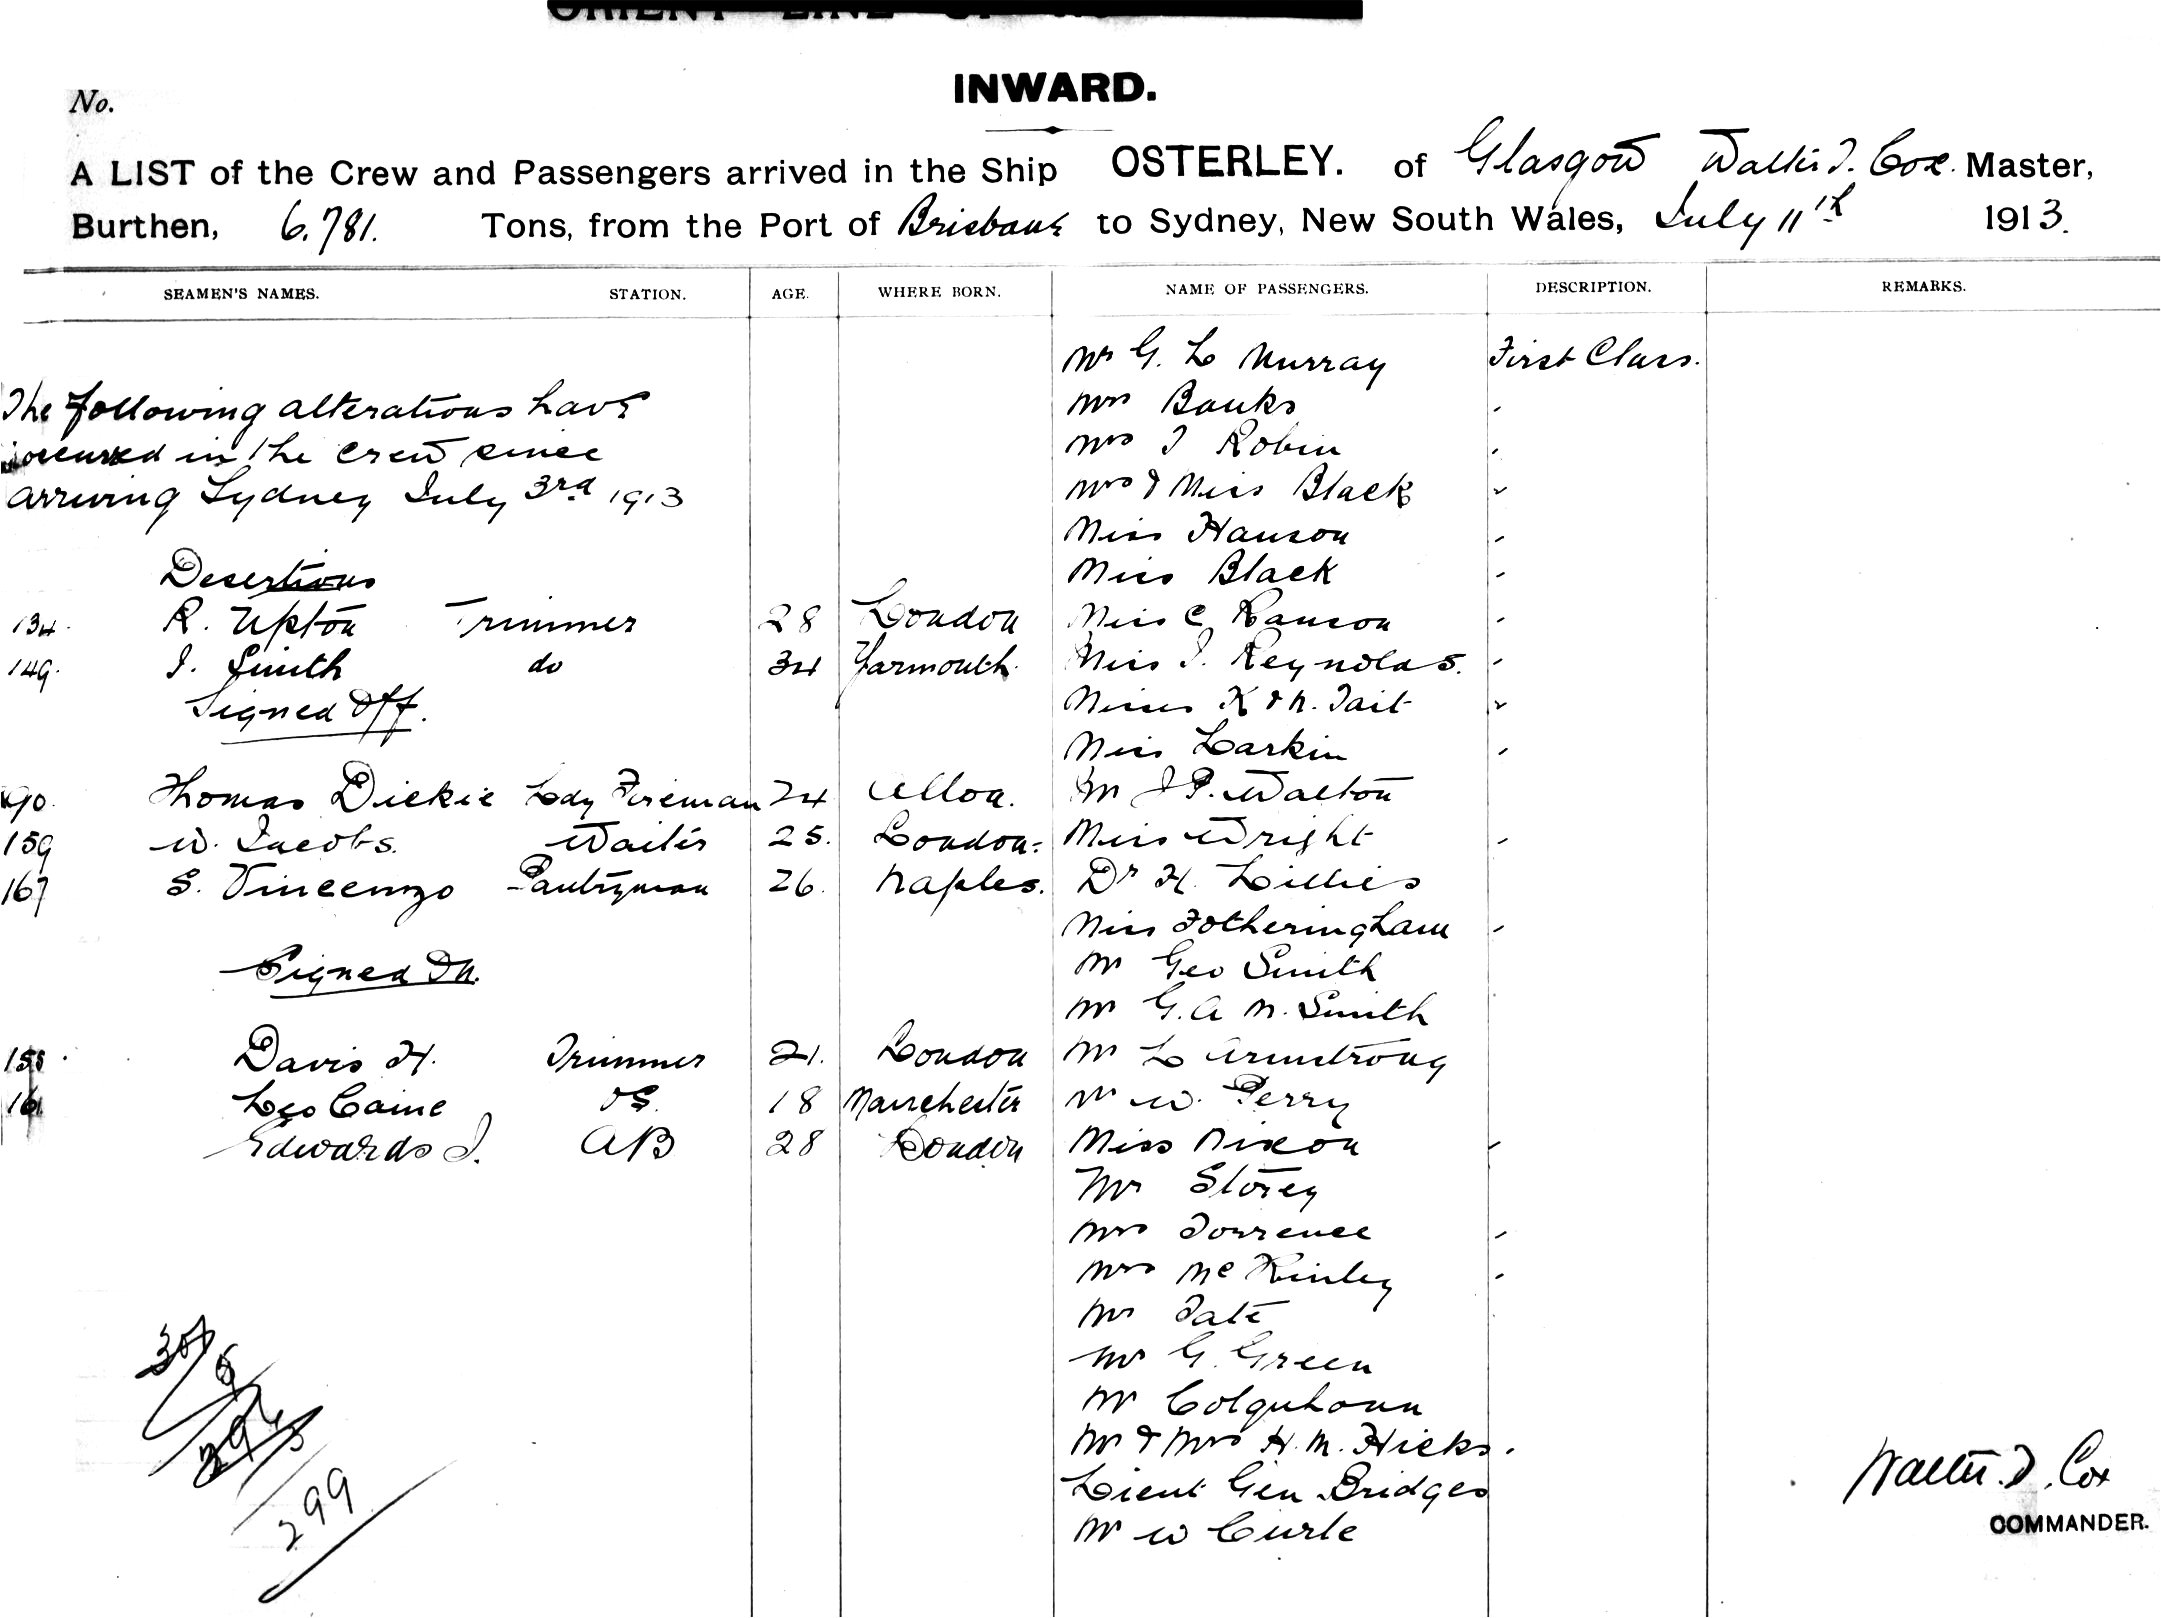 ORIENT LINE OF
INWARD.
No.
A LIST of the Crew and Passengers arrived in the Ship OSTERLEY. of Glasgow Walter J. Cox. Master,
Burthen, 6.781. Tons, from the Port of Brisbane to Sydney, New South Wales, July 11th 1913.
SEAMEN'S NAMES. STATION. AGE. WHERE BORN. NAME OF PASSENGERS. DESCRIPTION. REMARKS.
Mr G. L Murray First Class.
The following alterations have
Mrs Banks
occurred in the crew since
Mrs J Robin
arriving Sydney July 3rd 1913
Mrs & Miss Black
Miss Hanson
Desertions
Miss Black
134. R. Upton Trimmer 28 London Miss C Ranson
149. J. Smith do 34 Yarmouth. Miss J. Reynolds.
Signed Off.
Misses K & M. Tait
Miss Larkin
190. Thomas Dickie Ldg Fireman 24 Alloa. Mr J P. Walton
159 W. Jacobs. Waiter 25. London. Miss Wright
167 S. Vincenzo Pantryman 26. Naples. Dr H. Lillies
Miss Fotheringham
Signed On.
Mr Geo Smith
Mr G. A M. Smith
155 Davis H. Trimmer 21. London Mr L Armstrong
161 Leo Caine OS. 18 Manchester Mr W. Perry
Edwards J. AB 28 London Miss Nixon
Mr Storey
Mrs Torrence
Mrs McKinley
Mr Tate
Mr G. Green
Mr Colquhoun
Mr & Mrs H. M. Hicks.
Lieut Gen Bridges
Mr W Curle
299
Walter. J. Cox
COMMANDER.